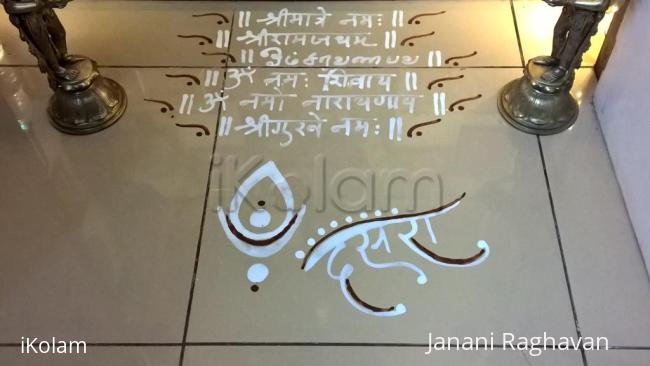 ॥ श्रीमात्रे नमः ॥
॥ श्रीरामजयम् ॥
॥ ஓம் சரவணபவ ॥
॥ ॐ नमः शिवाय ॥
॥ ॐ नमो नारायणाय ॥
॥ श्रीगुरवे नमः ॥
iKolam
दसरा
iKolam
Janani Raghavan